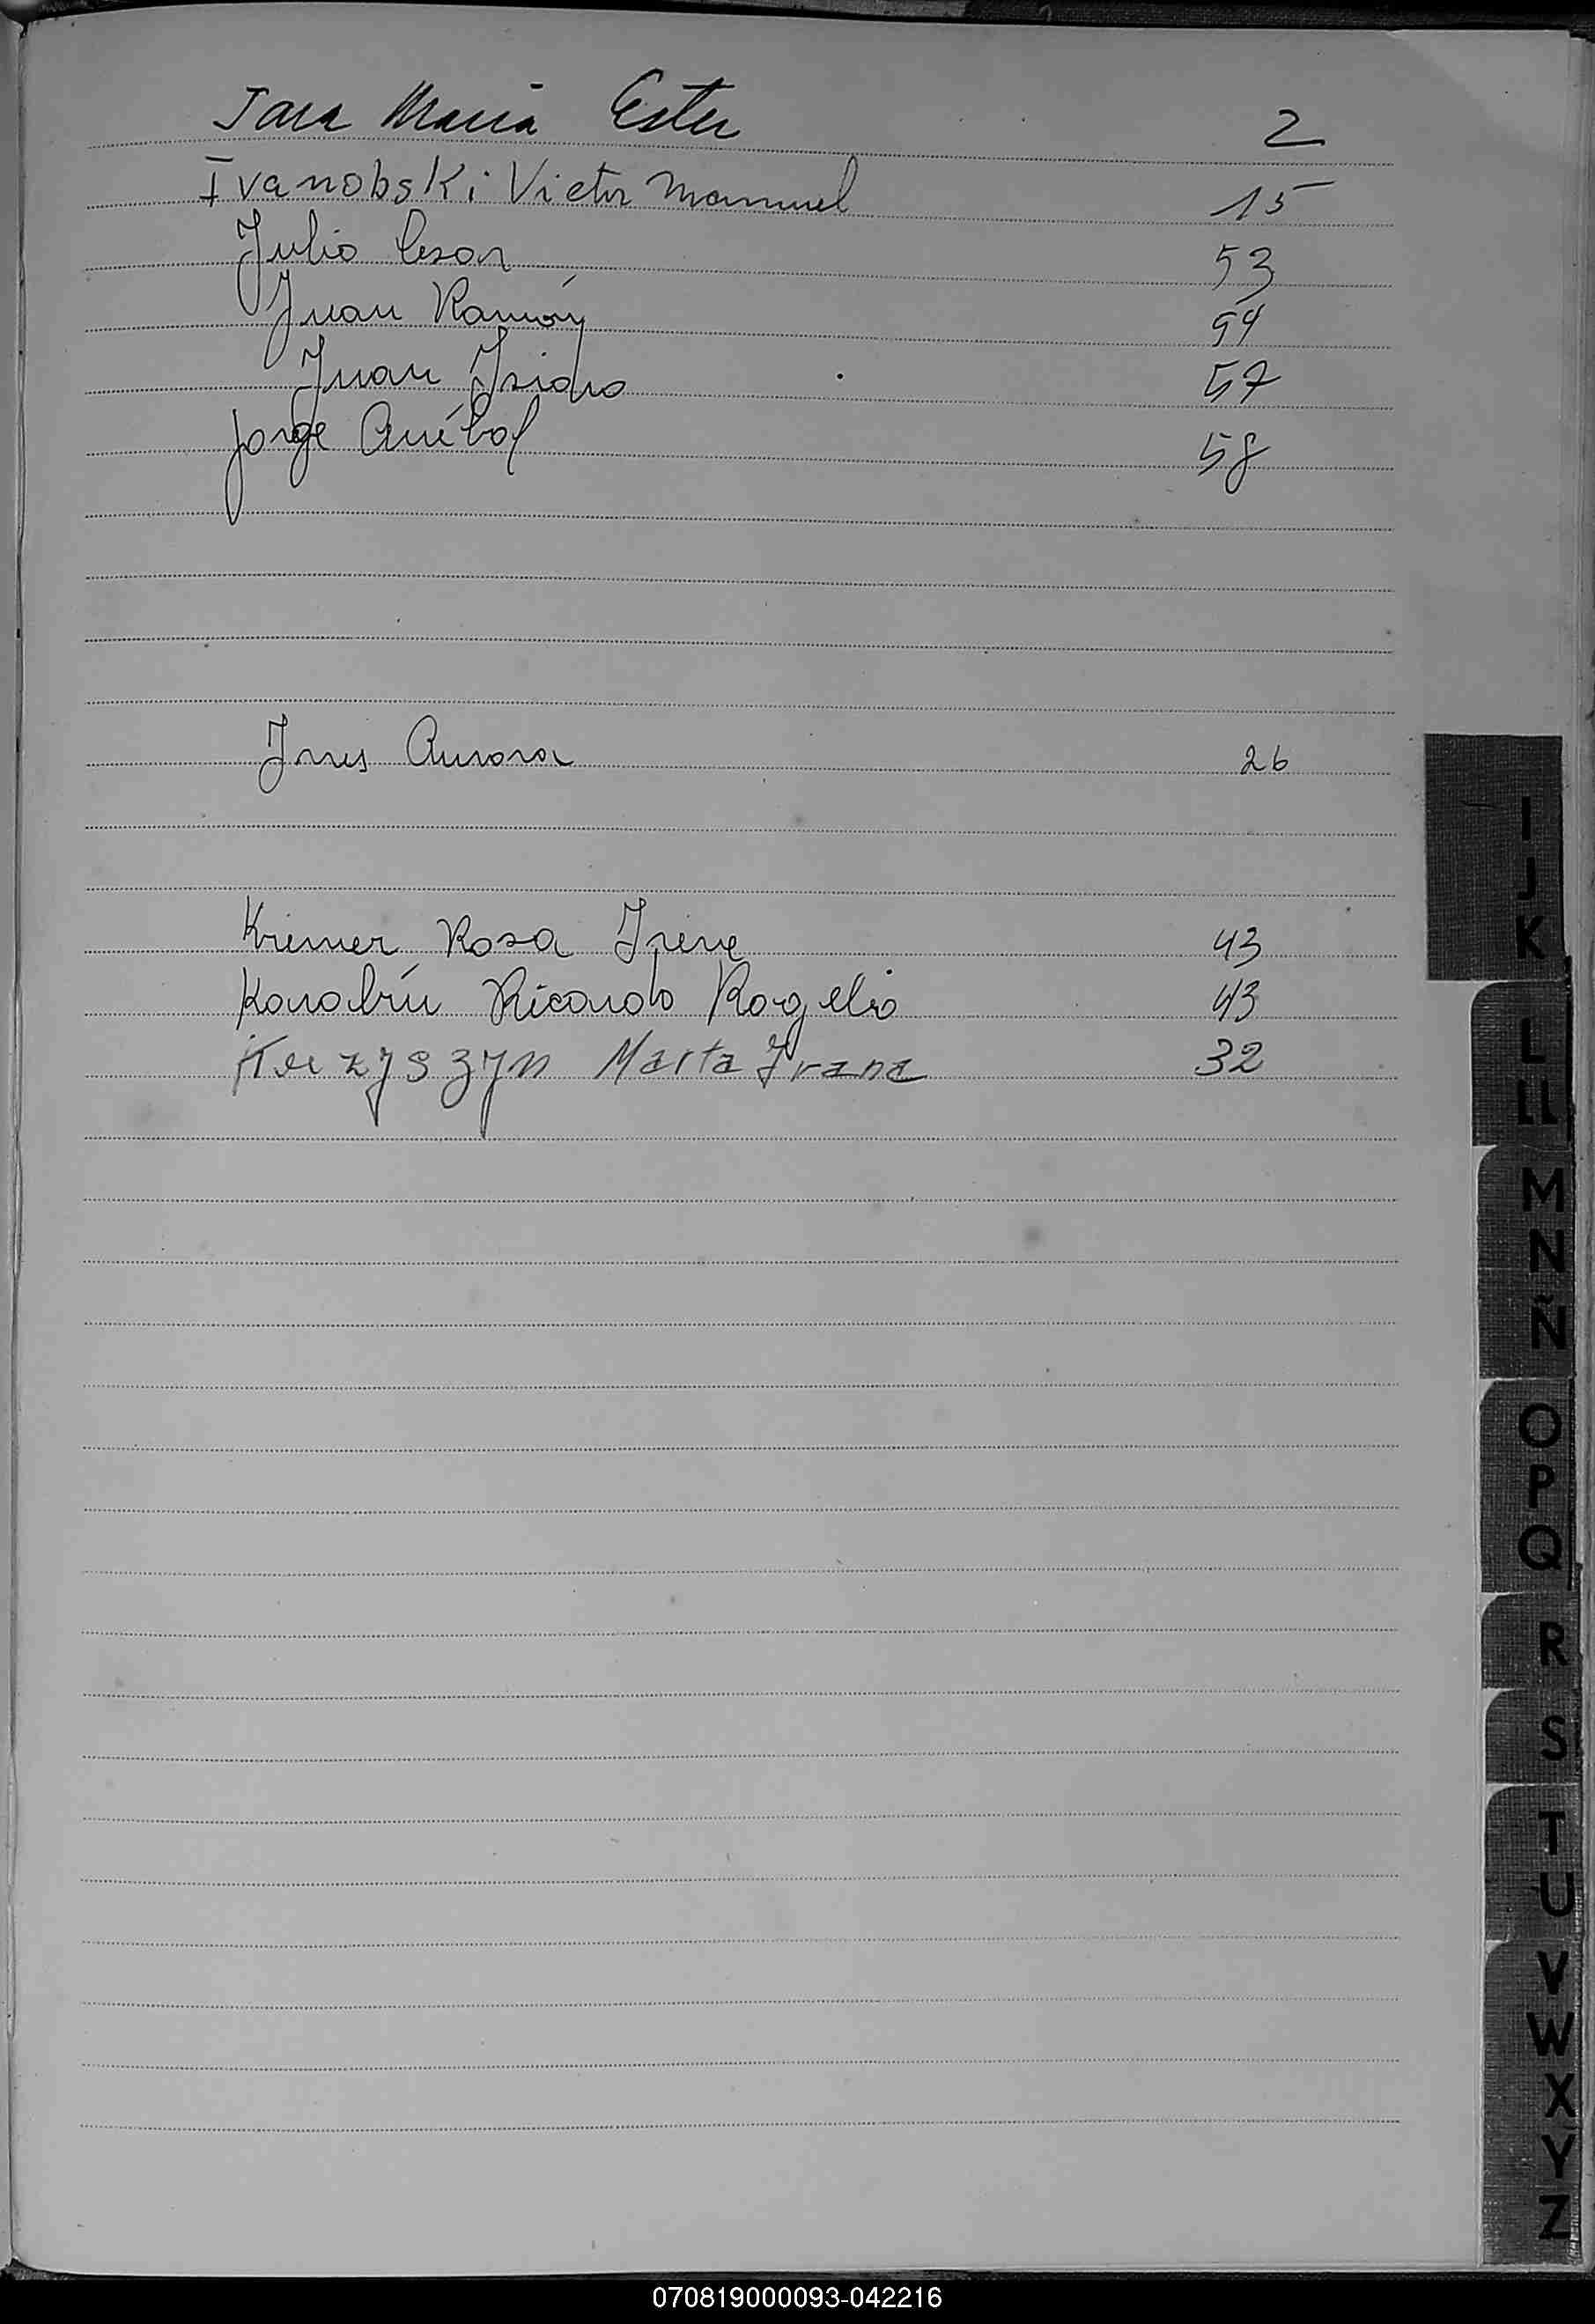 Jara Maria Ester 2
Ivanobski Victor Manuel 15
Julio Cesar 53
Juan Ramón 54
Juan Isidro 57
Jorge Aníbal 58
Ines Aurora 26
Kremer Rosa Irene 43
Konobrín Ricardo Rogelio 43
Kerzyszyn Marta Ivana 32
I
J
K
L
LL
M
N
Ñ
O
P
Q
R
S
T
U
V
W
X
Y
Z
070819000093-042216